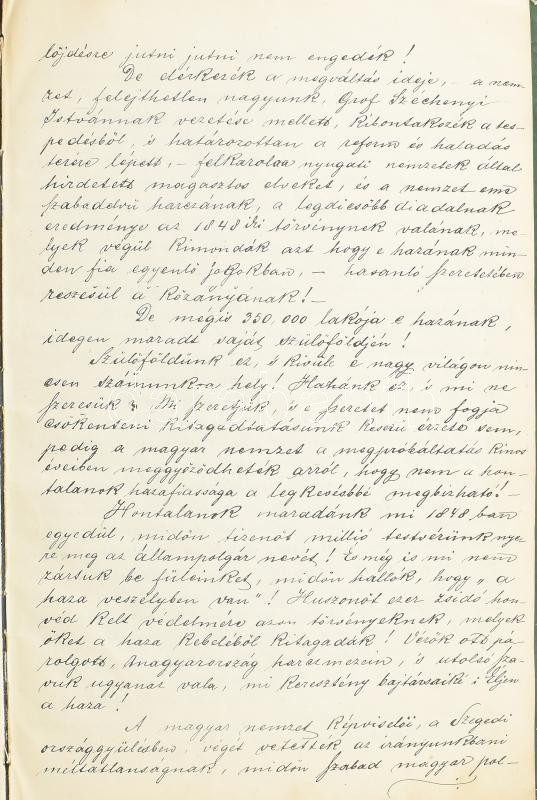 lőjdésre jutni jutni nem engedék!
De elérkezék a megváltás ideje, – a nem-
zet, felejthetlen nagyunk, Gróf Széchenyi
Istvánnak vezetése mellett, kibontakozék a tes-
pedésből, s határozottan a reform és haladás
terére lépett, – felkarolva a nyugati nemzetek által
hirdetett magasztos elveket, és a nemzet eme
szabadelvü harczának, a legdicsőbb diadalnak
eredménye az 1848 iki törvénynek valának, me-
lyek végül kimondák azt hogy e hazának min-
den fia egyenlő jogokban, – hasonló szeretetében
részesül a közanyának! –
De mégis 350,000 lakója e hazának,
idegen maradt saját szülőföldjén!
Szülőföldünk ez, s kivüle e nagy világon nin-
csen számunkra hely! Hazánk ez, s mi ne
szeressük? Mi szeretjük, s e szeretet nem fogja
csökenteni kitagadtatásunk keserü érzete sem,
pedig a magyar nemzet a megpróbáltatás kinos
éveiben meggyőződheték arról, hogy nem a hon-
talanok hazafiassága a legkevésbbé megbizható! –
Hontalanok maradánk mi 1848 ban
egyedül, midőn tizenöt millió testvérünk nye-
ré meg az állampolgár nevét! És még is mi nem
zártuk be füleinket, midőn hallók, hogy „a
haza veszélyben van"! Huszonöt ezer zsidó hon-
véd kelt védelmére azon törvényeknek, melyek
őket a haza kebeléből kitagadák! Vérök ott pá-
rolgott, Magyarország harczmezein, s utolsó sza-
vuk ugyanaz vala, mi keresztény bajtársaiké: Éljen
a haza!
A magyar nemzet képviselői, a Szegedi
országgyülésben, véget vetették az irányunkbani
méltatlanságnak, midőn szabad magyar pol-